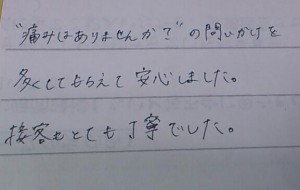 "痛みはありませんか?"の問いかけを
多くしてもらえて安心しました。
接客もとても丁寧でした。